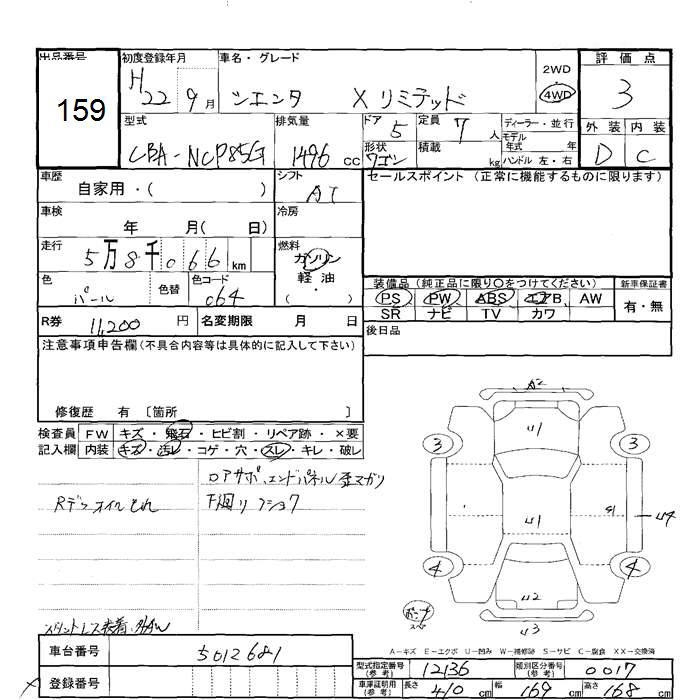 出品番号
159
初度登録年月 H22 9月
車名・グレード シエンタ Xリミテッド
2WD 4WD
評価点 3
外装 D 内装 C
型式 CBA-NCP85G
排気量 1496 cc
ドア 5
形状 ワゴン
定員 7 人
積載 kg
ディーラー・並行
モデル年式 年
ハンドル 左・右
車歴 自家用・( )
シフト AT
セールスポイント (正常に機能するものに限ります)
車検 年 月( 日)
冷房
走行 5万8千066km
燃料 ガソリン
軽油
・( )
色 パール 色替
色コード 064
装備品 (純正品に限り○をつけてください)
新車保証書
PS PW ABS エアB AW
有・無
SR ナビ TV カワ
R券 11,200 円
名変期限 月 日
後日品
注意事項申告欄(不具合内容等は具体的に記入して下さい)
修復歴 有 〔箇所 〕
検査員 FW キズ・飛石・ヒビ割・リペア跡・×要
記入欄 内装 キズ・汚レ・コゲ・穴・スレ・キレ・破レ
ロアサポ、エンドパネル歪マガリ
Rデフオイルもれ 下廻り フショク
A2
U1
3 3
U1
S1
U4
4 4
U2
U3
スタットレス装着
A-キズ E-エクボ U-凹み W-補修跡 S-サビ C-腐食 XX-交換済
車台番号 5012681
型式指定番号(参考) 12136
類別区分番号(参考) 0017
登録番号
車庫証明用(参考) 長さ 410 cm 幅 169 cm 高さ 168 cm